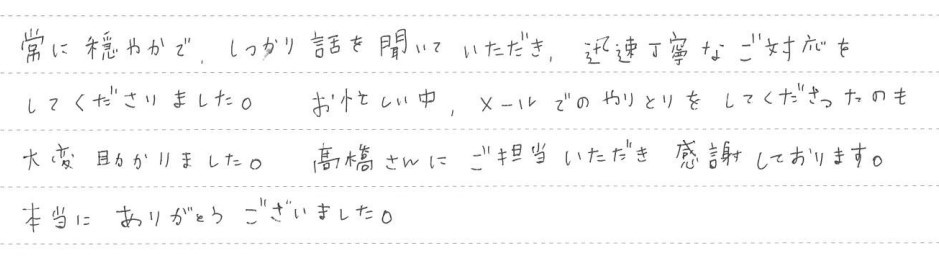 常に穏やかで、しっかり話を聞いていただき、迅速丁寧なご対応を
してくださりました。 お忙しい中、メールでのやりとりをしてくださったのも
大変助かりました。 髙橋さんにご担当いただき感謝しております。
本当にありがとうございました。